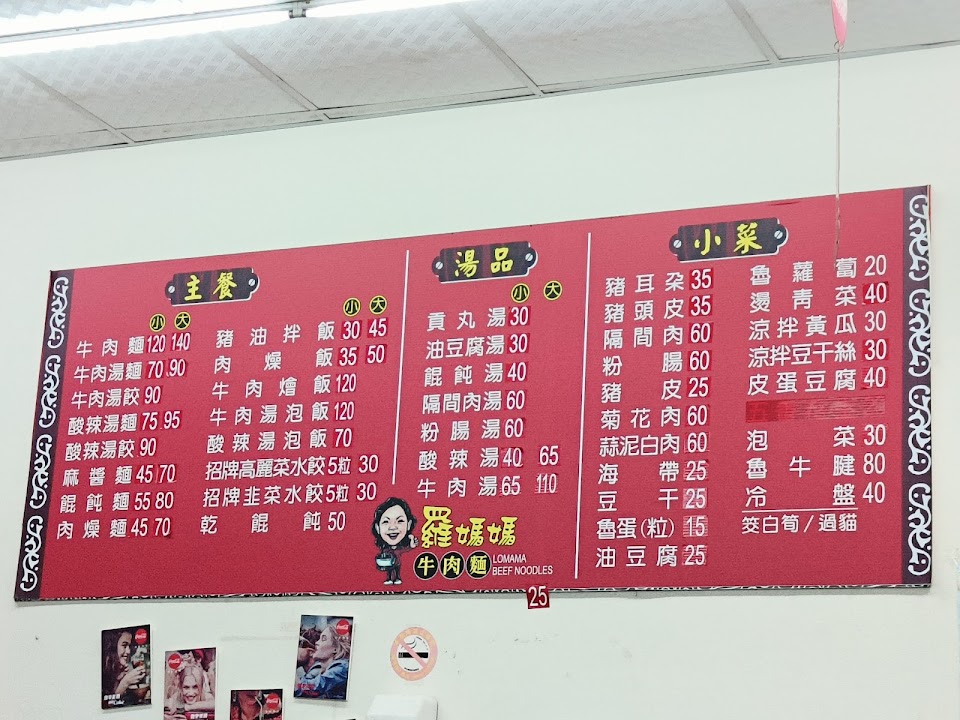 主餐
小 大
牛肉麵 120 140
牛肉湯麵 70 90
牛肉湯餃 90
酸辣湯麵 75 95
酸辣湯餃 90
麻醬麵 45 70
餛飩麵 55 80
肉燥麵 45 70
小 大
豬油拌飯 30 45
肉燥飯 35 50
牛肉燴飯 120
牛肉湯泡飯 120
酸辣湯泡飯 70
招牌高麗菜水餃5粒 30
招牌韭菜水餃5粒 30
乾餛飩 50
湯品
小 大
貢丸湯 30
油豆腐湯 30
餛飩湯 40
隔間肉湯 60
粉腸湯 60
酸辣湯 40 65
牛肉湯 65 110
羅媽媽
牛肉麵
LOMAMA
BEEF NOODLES
小菜
豬耳朵 35
豬頭皮 35
隔間肉 60
粉腸 60
豬皮 25
菊花肉 60
蒜泥白肉 60
海帶 25
豆干 25
魯蛋(粒) 15
油豆腐 25
魯蘿蔔 20
燙青菜 40
涼拌黃瓜 30
涼拌豆干絲 30
皮蛋豆腐 40
泡菜 30
魯牛腱 80
冷盤 40
筊白筍/過貓
25